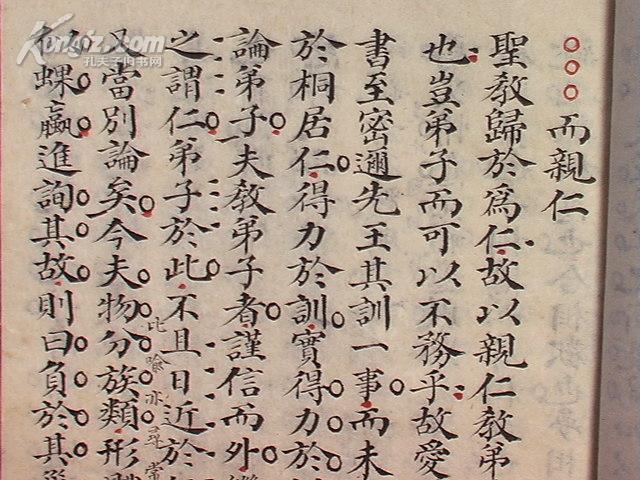 而親仁
聖教歸於為仁故以親仁教弟
也豈弟子而可以不務乎故愛
書至密邇先王其訓一事而未
於桐居仁得力於訓實得力於
論弟子夫教弟子者謹信而外
之謂仁弟子於此不且日近於
又當別論矣今夫物分族類形
蜾蠃進詢其故則曰負於其
比喻亦尋常
Kongfz.com
孔夫子旧书网